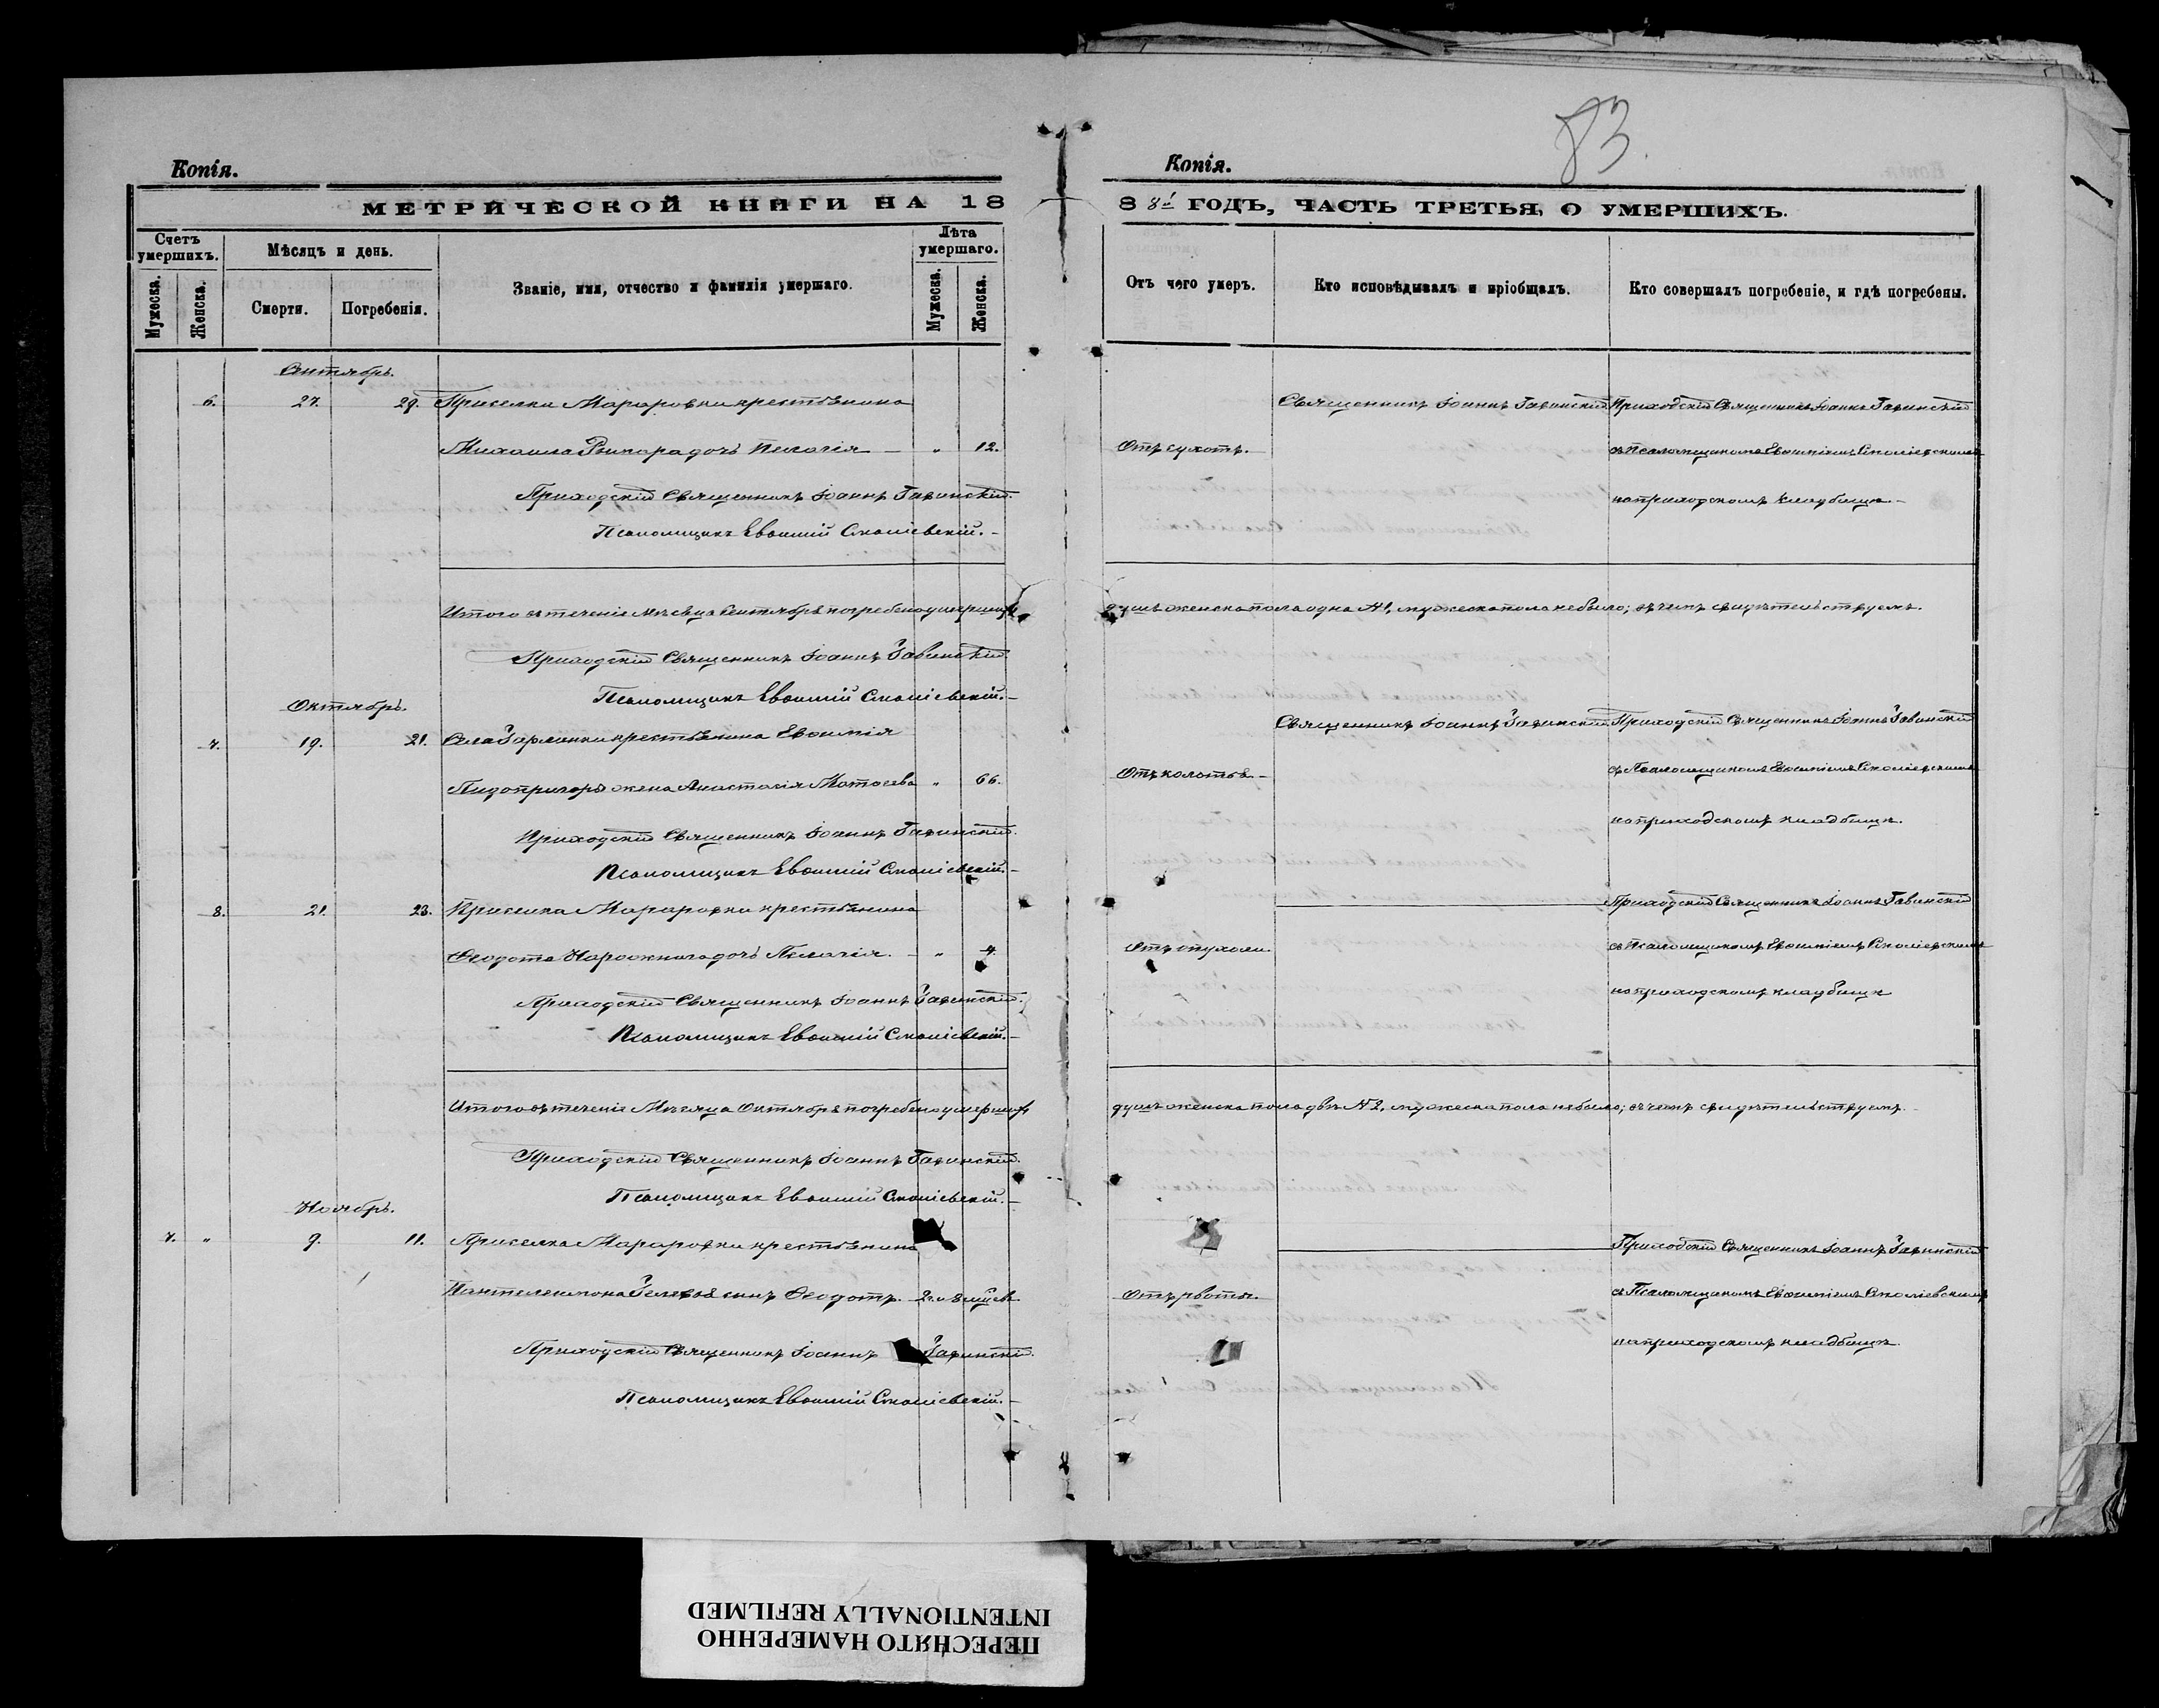 83.
Копія.
МЕТРИЧЕСКОЙ КНИГИ НА 18
Счетъ умершихъ.
Мужеска.
Женска.
Мѣсяцъ и день.
Смерти.
Погребенія.
Званіе, имя, отчество и фамилія умершаго.
Лѣта умершаго.
Мужеска.
Женска.
Сентябрь.
6. 27. 29. Приселка Макаровки крестьянина
Михаила дочь Пелагія — " 12.
Приходскій Священникъ Іоаннъ
Псаломщикъ Евѳимій Смолієвскій.-
Итого въ теченіе мѣсяца Сентября погребено умершихъ
Приходскій Священникъ Іоаннъ
Псаломщикъ Евѳимій Смолієвскій.-
Октябрь.
7. 19. 21. Села крестьянина Евѳимія
Пидопригоры жена Анастасія Матѳеева " 66.
Приходскій Священникъ Іоаннъ
Псаломщикъ Евѳимій Смолієвскій.-
8. 21. 23. Приселка Макаровки крестьянина
Ѳеодота дочь Пелагія. — " 4.
Приходскій Священникъ Іоаннъ
Псаломщикъ Евѳимій Смолієвскій.-
Итого въ теченіе Мѣсяца Октября погребено умершихъ
Приходскій Священникъ Іоаннъ
Псаломщикъ Евѳимій Смолієвскій.-
Ноябрь.
7. " 9. 11. Приселка Макаровки крестьянина
Пантелеимона сынъ Ѳеодотъ. 2. и 8 мцсвъ
Приходскій Священникъ Іоаннъ
Псаломщикъ Евѳимій Смолієвскій.-
Копія.
8 8й ГОДЪ, ЧАСТЬ ТРЕТЬЯ, О УМЕРШИХЪ.
Отъ чего умеръ.
Кто исповѣдывалъ и пріобщалъ.
Кто совершалъ погребеніе, и гдѣ погребены.
Священникъ Іоаннъ Приходскій Священникъ Іоаннъ
Отъ сухотъ. съ Псаломщикомъ Евѳиміемъ Смолієвскимъ
на приходскомъ кладбищѣ.-
душъ женска пола одна №1, мужеска пола не было; въ чемъ свидѣтельствуемъ.
Священникъ Іоаннъ Приходскій Священникъ Іоаннъ
Отъ колотья съ Псаломщикомъ Евѳиміемъ Смолієвскимъ
на приходскомъ кладбищѣ.
Приходскій Священникъ Іоаннъ
Отъ опухоли. съ Псаломщикомъ Евѳиміемъ Смолієвскимъ
на приходскомъ кладбищѣ
душъ женска пола двѣ №2, мужеска пола не было; въ чемъ свидѣтельствуемъ.
Приходскій Священникъ Іоаннъ
Отъ рвоты. съ Псаломщикомъ Евѳиміемъ Смолієвскимъ
на приходскомъ кладбищѣ.
ПЕРЕСНЯТО НАМЕРЕННО
INTENTIONALLY REFILMED